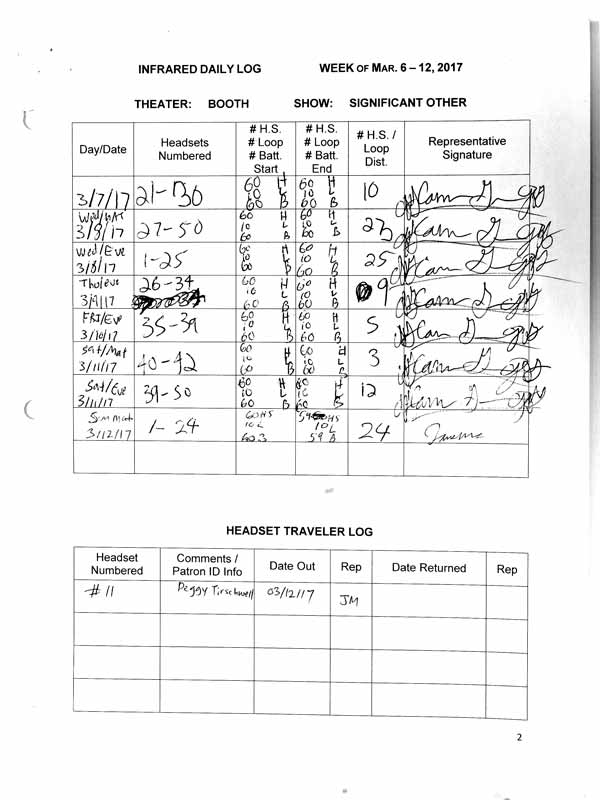 INFRARED DAILY LOG WEEK OF MAR. 6 – 12, 2017
THEATER: BOOTH SHOW: SIGNIFICANT OTHER
Day/Date Headsets Numbered # H.S. # Loop # Batt. Start # H.S. # Loop # Batt. End # H.S. / Loop Dist. Representative Signature
3/7/17 21-30 60 H 10 L 60 B 60 H 10 L 60 B 10
Wed/MAT 3/8/17 27-50 60 H 10 L 60 B 60 H 10 L 60 B 23
Wed/Eve 3/8/17 1-25 60 H 10 L 60 B 60 H 10 L 60 B 25
3/9/17 26-34 60 H 10 L 60 B 60 H 10 L 60 B 9
FRI/Eve 3/10/17 35-39 60 H 10 L 60 B 60 H 10 L 60 B 5
Sat/Mat 3/11/17 40-42 60 H 10 L 60 B 60 H 10 L 60 B 3
Sat/Eve 3/11/17 39-50 60 H 10 L 60 B 60 H 10 L 60 B 12
Sun Mat 3/12/17 1-24 60 HS 10 L 60 B 59 HS 10 L 59 B 24
HEADSET TRAVELER LOG
Headset Numbered Comments / Patron ID Info Date Out Rep Date Returned Rep
# 11 Peggy Tirschwell 03/12/17 JM
2